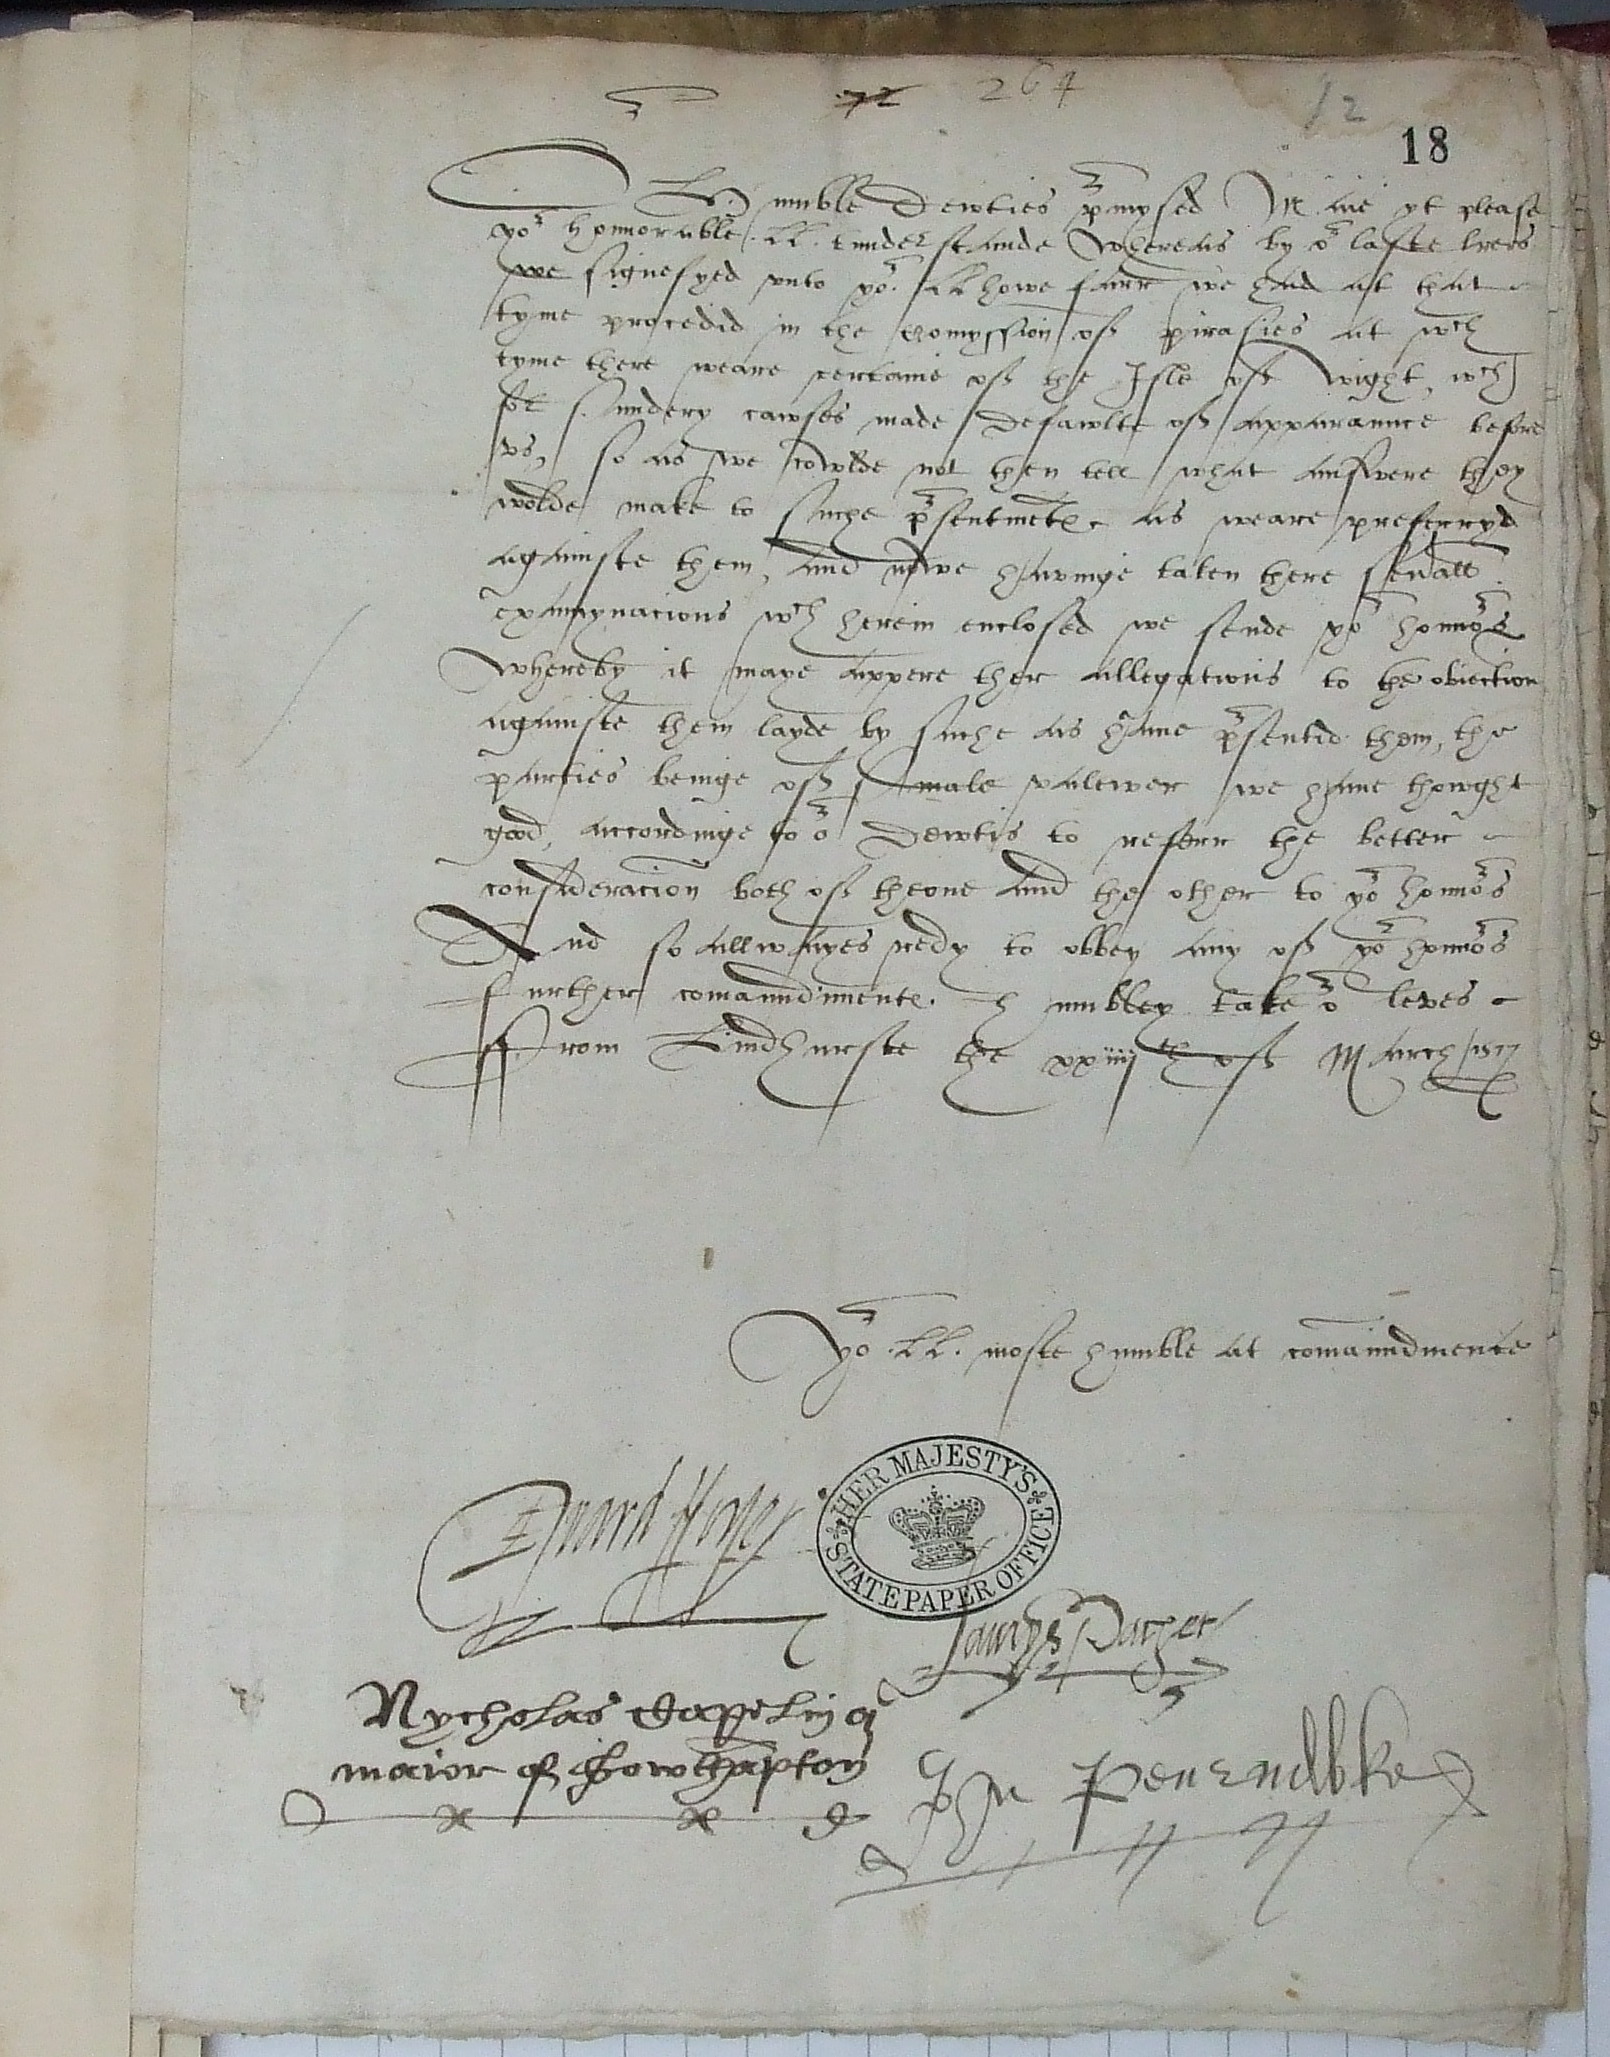 72 264 12
18
Humble Dewties p'mysed Maie yt please
yor honnorable LL. Vnderstande Whereas by or laste lres
we signefyed vnto yor LL howe farr we had at that
tyme procedid in the Comyssion off pirasies at wch
tyme there weare certaine off the Isle off Wight, wch
for sundery cawses made Defawlte off apparaunce before
vs, so as we cowlde not then tell what answere they
wolde make to suche p'sentmetes as weare preferryd
againste them, and nowe havinge taken there seuall
examynacions wch herein enclosed we sende yor honnors
Whereby it maye appere ther allegations to the obiection
againste them layde by suche as haue p'sentid them, the
parties beinge off smale valewer we haue thowght
good, accordinge to or Dewtis to referr the better
consideracion both off theone and the other to yor honnors
And so allwayes redy to obbey any off yor honnors
further comaundimentes. Humbley take or leves
From Lindhurste the xxiiijth off March 1577
Yor LL. moste humble at comaundmente
Eduard Horsey
HER MAJESTY'S STATE PAPER OFFICE
Jamys Paget
Nycholas Capelin
maior of Sowthapton
Penruddoke